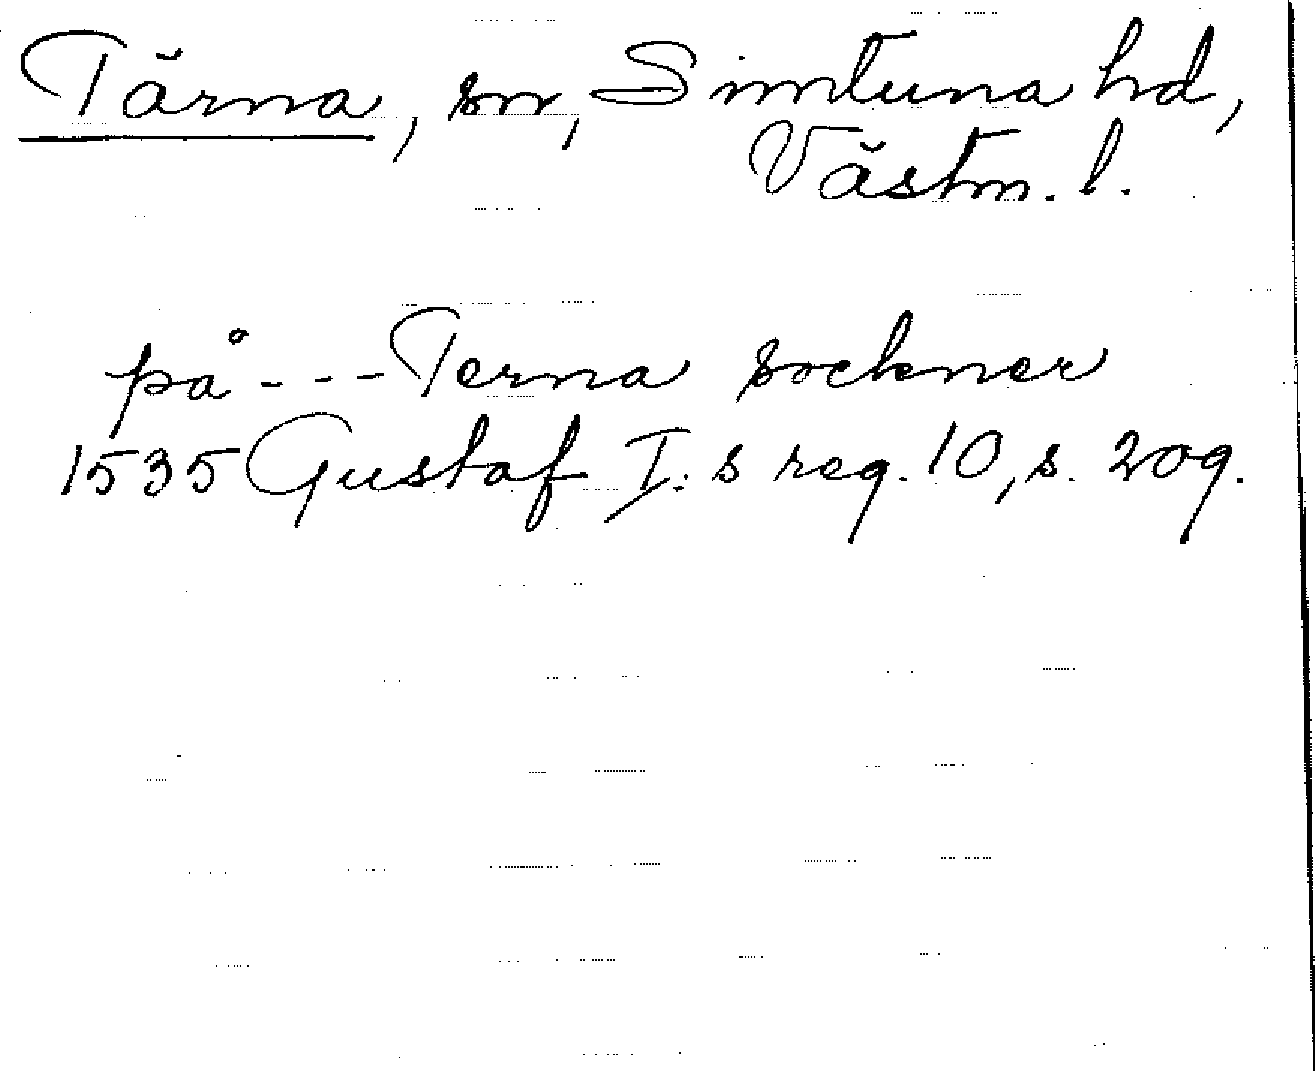 Tärna, sn, Simtuna hd,
Västm. l.
på --- Terna sockner
1535 Gustaf I:s reg. 10, s. 209.